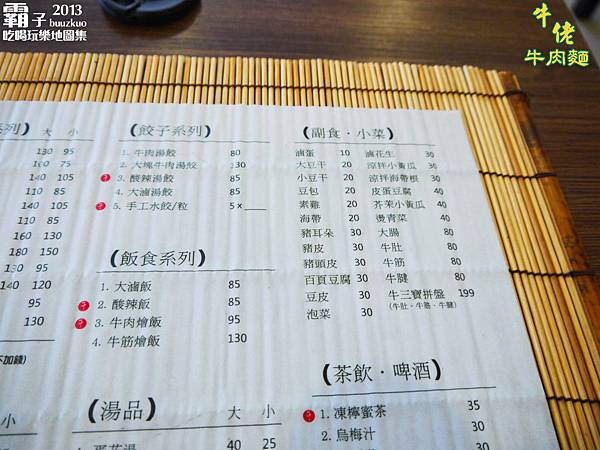 霸子 2013
buuzkuo
吃喝玩樂地圖集
牛佬
牛肉麵
系列) 大 小
130 95
160 75
140 105
110 85
140 105
110 85
160 130
180 150
140 120
95
130
不加麵)
小
(餃子系列)
1. 牛肉湯餃 80
2. 大塊牛肉湯餃 130
3. 酸辣湯餃 85
4. 大滷湯餃 85
5. 手工水餃/粒 5 x____
(飯食系列)
1. 大滷飯 85
2. 酸辣飯 85
3. 牛肉燴飯 95
4. 牛筋燴飯 130
(湯品) 大 小
1. 蛋花湯 40 25
(副食·小菜)
滷蛋 10 滷花生 30
大豆干 20 涼拌小黃瓜 30
小豆干 20 涼拌海帶根 30
豆包 20 皮蛋豆腐 40
素雞 20 芥茉小黃瓜 40
海帶 20 燙青菜 40
豬耳朵 30 大腸 40
豬皮 30 牛肚 80
豬頭皮 30 牛筋 80
百頁豆腐 30 牛腱 80
豆皮 30 牛三寶拼盤 199
(牛肚·牛筋·牛腱)
泡菜 30
(茶飲·啤酒)
1. 凍檸蜜茶 35
2. 烏梅汁 30
30